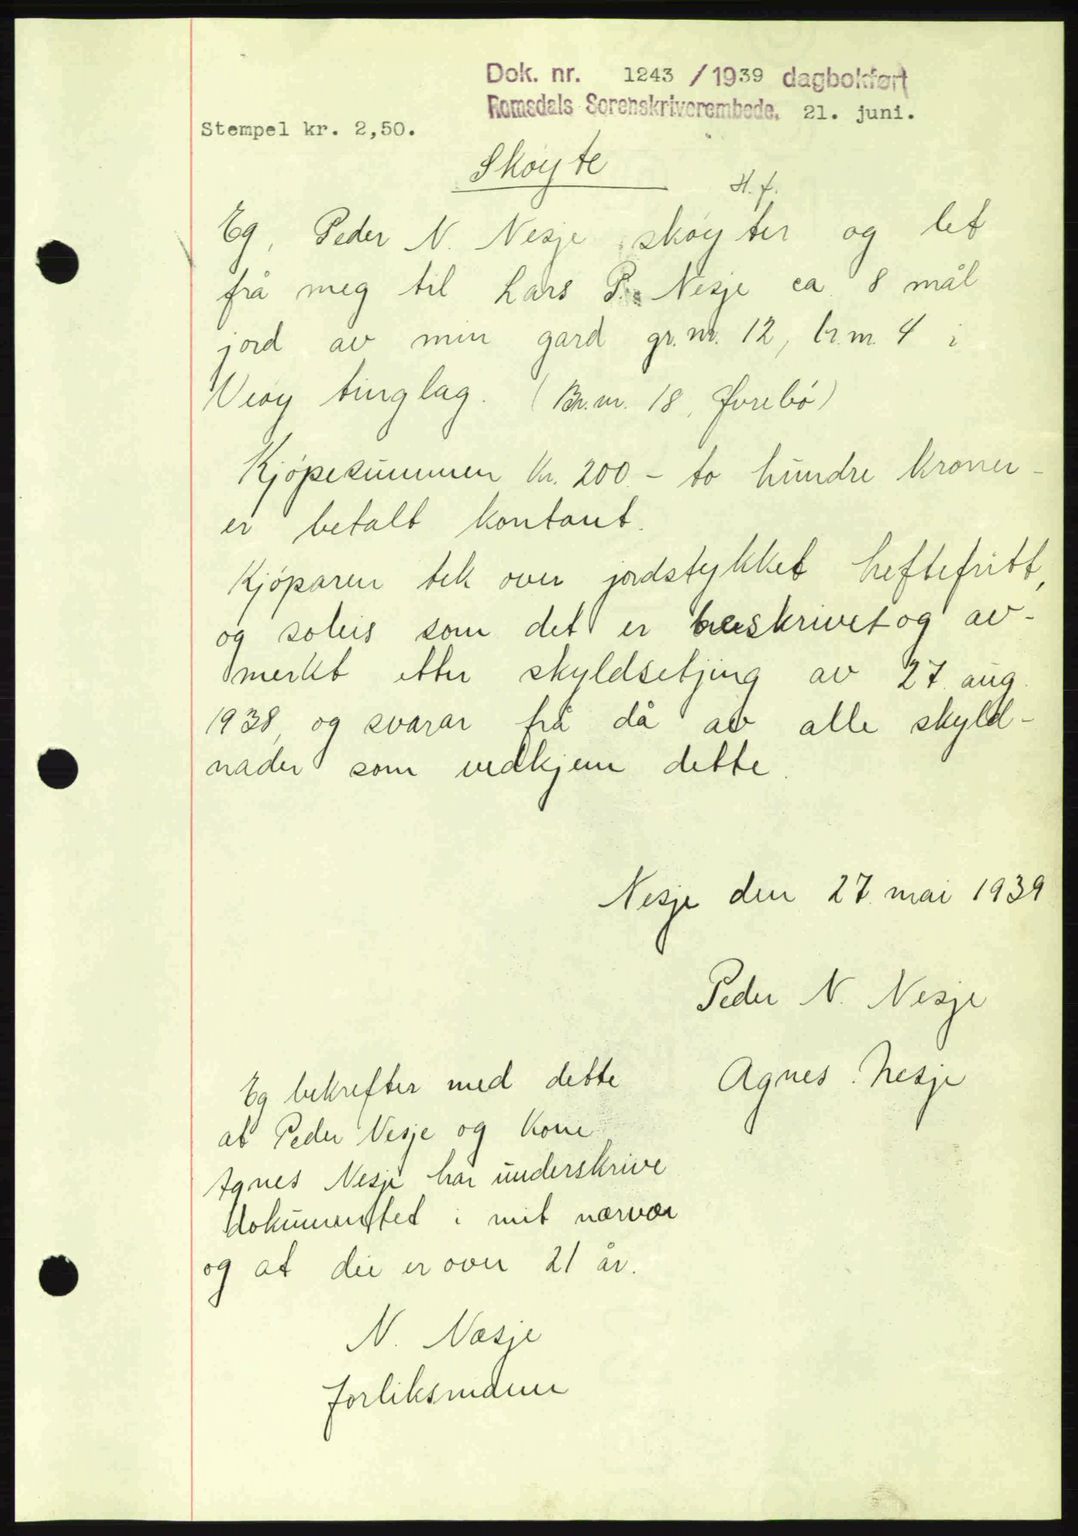 Dok. nr. 1243 /1939 dagbokført
Romsdals Sorenskriverembede. 21. juni.
Stempel kr. 2,50.
Skøyte
H. f.
Eg, Peder N. Nesje skøyter og let
frå meg til Lars P. Nesje ca 8 mål
jord av min gard gr.nr. 12, br.nr. 4 i
Veøy tinglag. (Br.nr. 18, Øvrebø)
Kjøpesummen kr. 200.- to hundre kroner -
er betalt kontant.
Kjøparen tek over jordstykket heftefritt,
og soleis som det er beskrivet og av-
merkt etter skyldsetjing av 27. aug.
1938, og svarar frå då av alle skyld-
nader som vedkjem dette.
Nesje den 27. mai 1939
Peder N. Nesje
Agnes Nesje
Eg bekrefter med dette
at Peder Nesje og kone
Agnes Nesje har underskrive
dokumentet i mit nærvær
og at dei er over 21 år.
N. Næsje
forliksmann